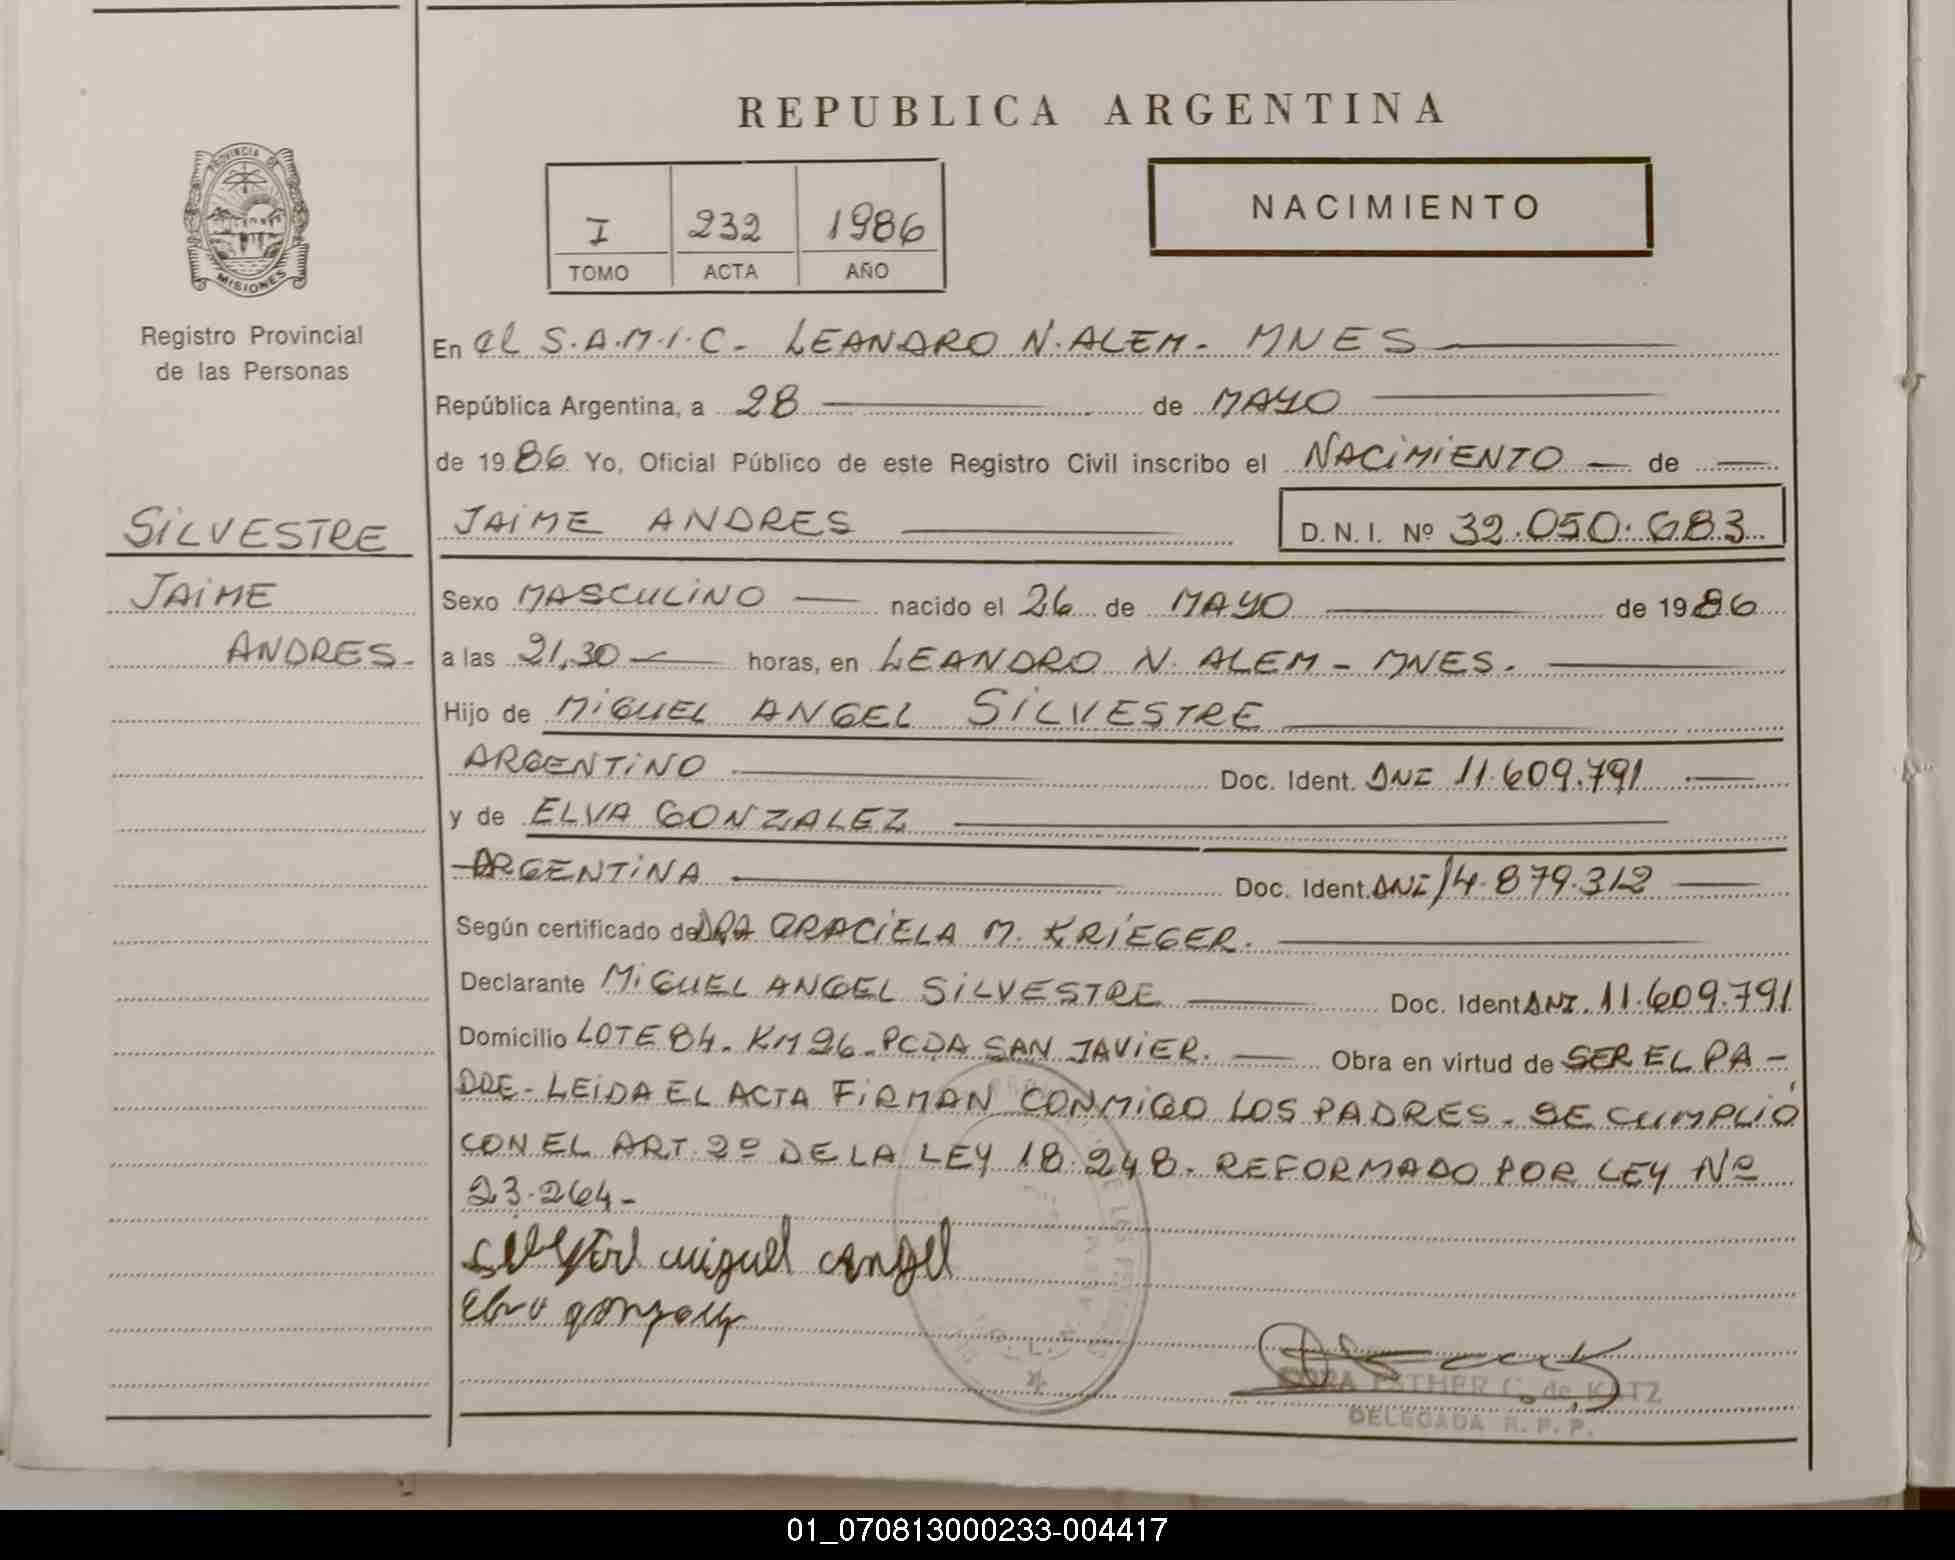 REPUBLICA ARGENTINA
PROVINCIA DE
MISIONES
Registro Provincial
de las Personas
I 232 1986
TOMO ACTA AÑO
NACIMIENTO
En el S.A.M.I.C- LEANDRO N. ALEM- MNES
República Argentina, a 28 de MAYO
de 1986 Yo, Oficial Público de este Registro Civil inscribo el NACIMIENTO — de —
SILVESTRE
JAIME
ANDRES-
JAIME ANDRES D. N. I. Nº 32.050.683
Sexo MASCULINO — nacido el 26 de MAYO de 1986
a las 21,30 — horas, en LEANDRO N. ALEM - MNES.
Hijo de MIGUEL ANGEL SILVESTRE
ARGENTINO Doc. Ident. DNI 11.609.791
y de ELVA GONZALEZ
ARGENTINA Doc. Ident. DNI 14.879.312
Según certificado de DRA GRACIELA M. KRIEGER.
Declarante MIGUEL ANGEL SILVESTRE Doc. Ident DNI. 11.609.791
Domicilio LOTE 84. KM 96. PCDA SAN JAVIER. — Obra en virtud de SER EL PA-
DRE- LEIDA EL ACTA FIRMAN CONMIGO LOS PADRES- SE CUMPLIÓ
CON EL ART. 2º DE LA LEY 18.248. REFORMADO POR LEY Nº
23.264-
Silvestre miguel angel
elva gonzalez
DORA ESTHER C. de KATZ
DELEGADA R. P. P.
01_070813000233-004417